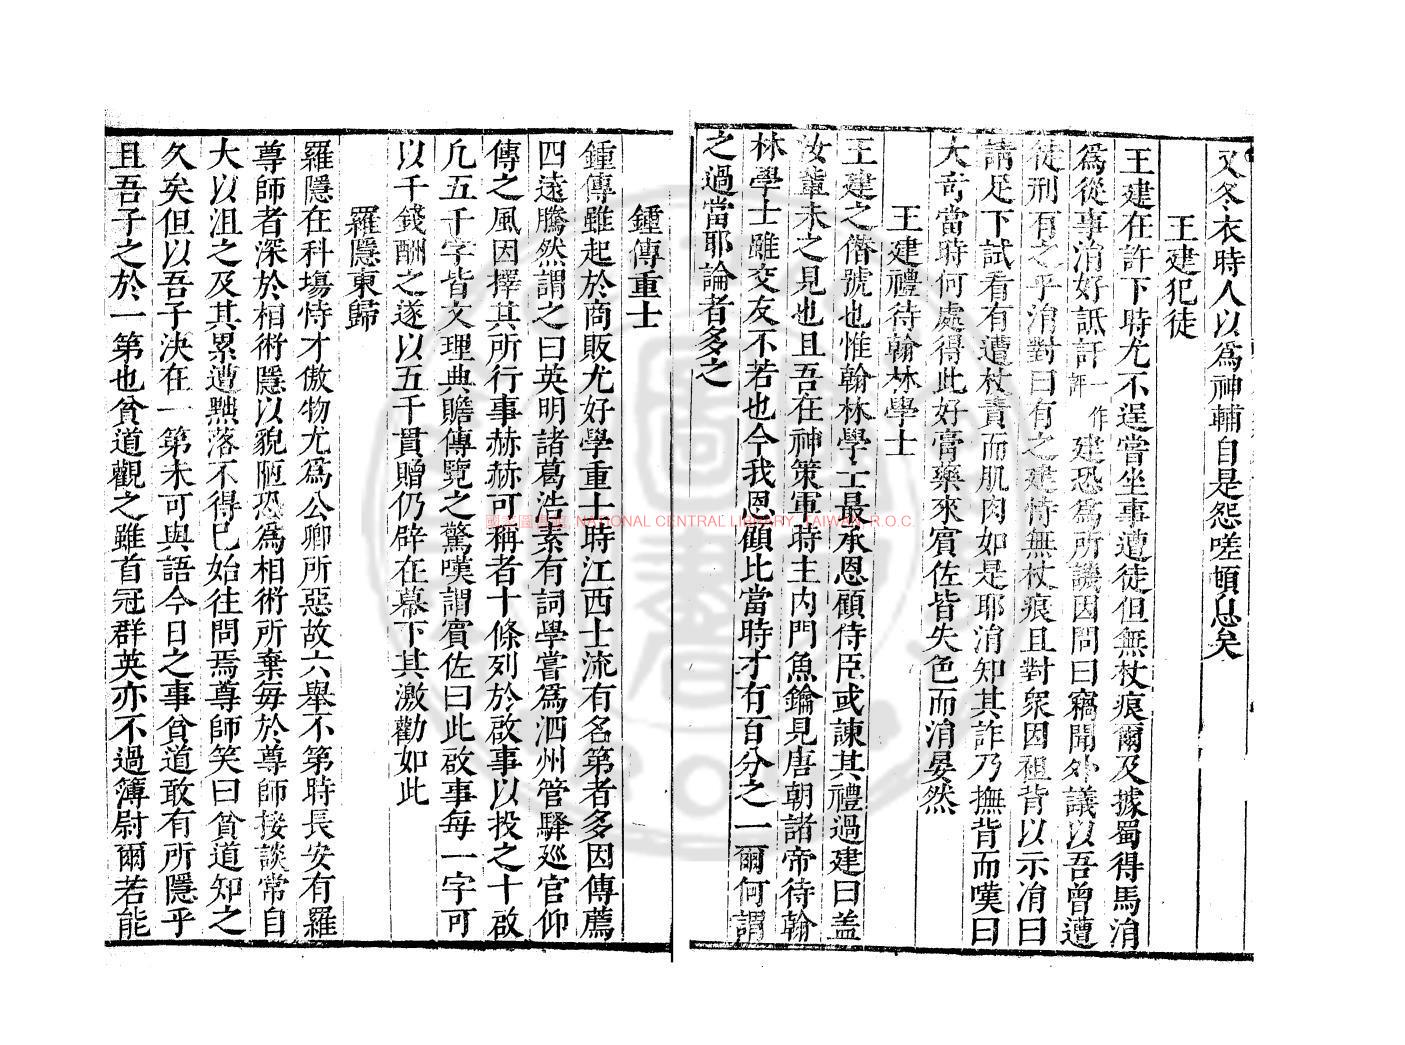 又冬衣時人以為神輔自是怨嗟頓息矣
王建犯徒
王建在許下時尤不逞嘗坐事遭徒但無杖痕爾及據蜀得馬涓
為從事涓好詆訐一作評建恐為所譏因問曰竊聞外議以吾曾遭
徒刑有之乎涓對曰有之建恃無杖痕且對眾因袒背以示涓曰
請足下試看有遭杖責而肌肉如是耶涓知其詐乃撫背而嘆曰
大奇當時何處得此好膏藥來賓佐皆失色而涓晏然
王建禮待翰林學士
王建之僭號也惟翰林學士最承恩顧侍臣或諫其禮過建曰盖
汝輩未之見也且吾在神策軍時主內門魚鑰見唐朝諸帝待翰
林學士雖交友不若也今我恩顧比當時才有百分之一爾何謂
之過當耶論者多之
鍾傳重士
鍾傳雖起於商販尤好學重士時江西士流有名第者多因傳薦
四遠騰然謂之曰英明諸葛浩素有詞學嘗為泗州管驛廵官仰
傳之風因擇其所行事赫赫可稱者十條列於啟事以投之十啟
凢五千字皆文理典贍傳覽之驚嘆謂賓佐曰此啟事每一字可
以千錢酬之遂以五千貫贈仍辟在幕下其激勸如此
羅隱東歸
羅隱在科塲恃才傲物尤為公卿所惡故六舉不第時長安有羅
尊師者深於相術隱以貌陋恐為相術所棄每於尊師接談常自
大以沮之及其累遭黜落不得已始往問焉尊師笑曰貧道知之
久矣但以吾子決在一第未可與語今日之事貧道敢有所隱乎
且吾子之於一第也貧道觀之雖首冠群英亦不過簿尉爾若能
國家圖書館 NATIONAL CENTRAL LIBRARY, TAIWAN, R.O.C.